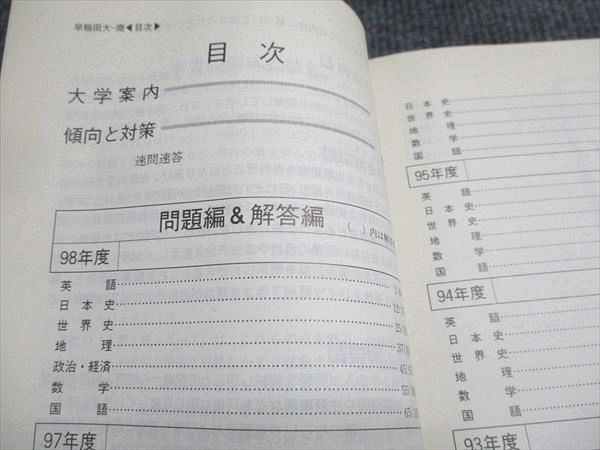 早稲田大-商◀目次▶
目次
大学案内
傾向と対策
速問速答
問題編&解答編 ( )内は解答
98年度
英語
日本史
世界史
地理
政治・経済
数学
国語
97年度
日本史
世界史
地理
数学
国語
95年度
英語
日本史
世界史
地理
数学
国語
94年度
英語
日本史
世界史
地理
数学
国語
93年度